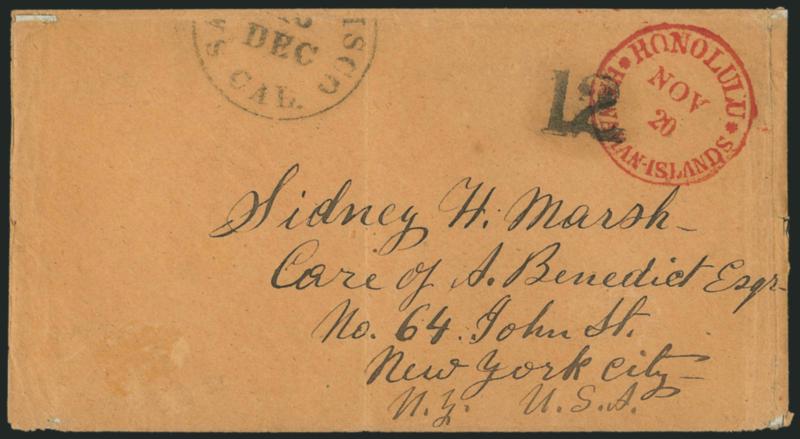 SAN FRANCISCO
DEC
CAL.
12
HONOLULU
NOV
20
HAWAIIAN-ISLANDS
Sidney H. Marsh
Care of A. Benedict Esqr
No. 64 John St.
New York city
N.Y. U.S.A.